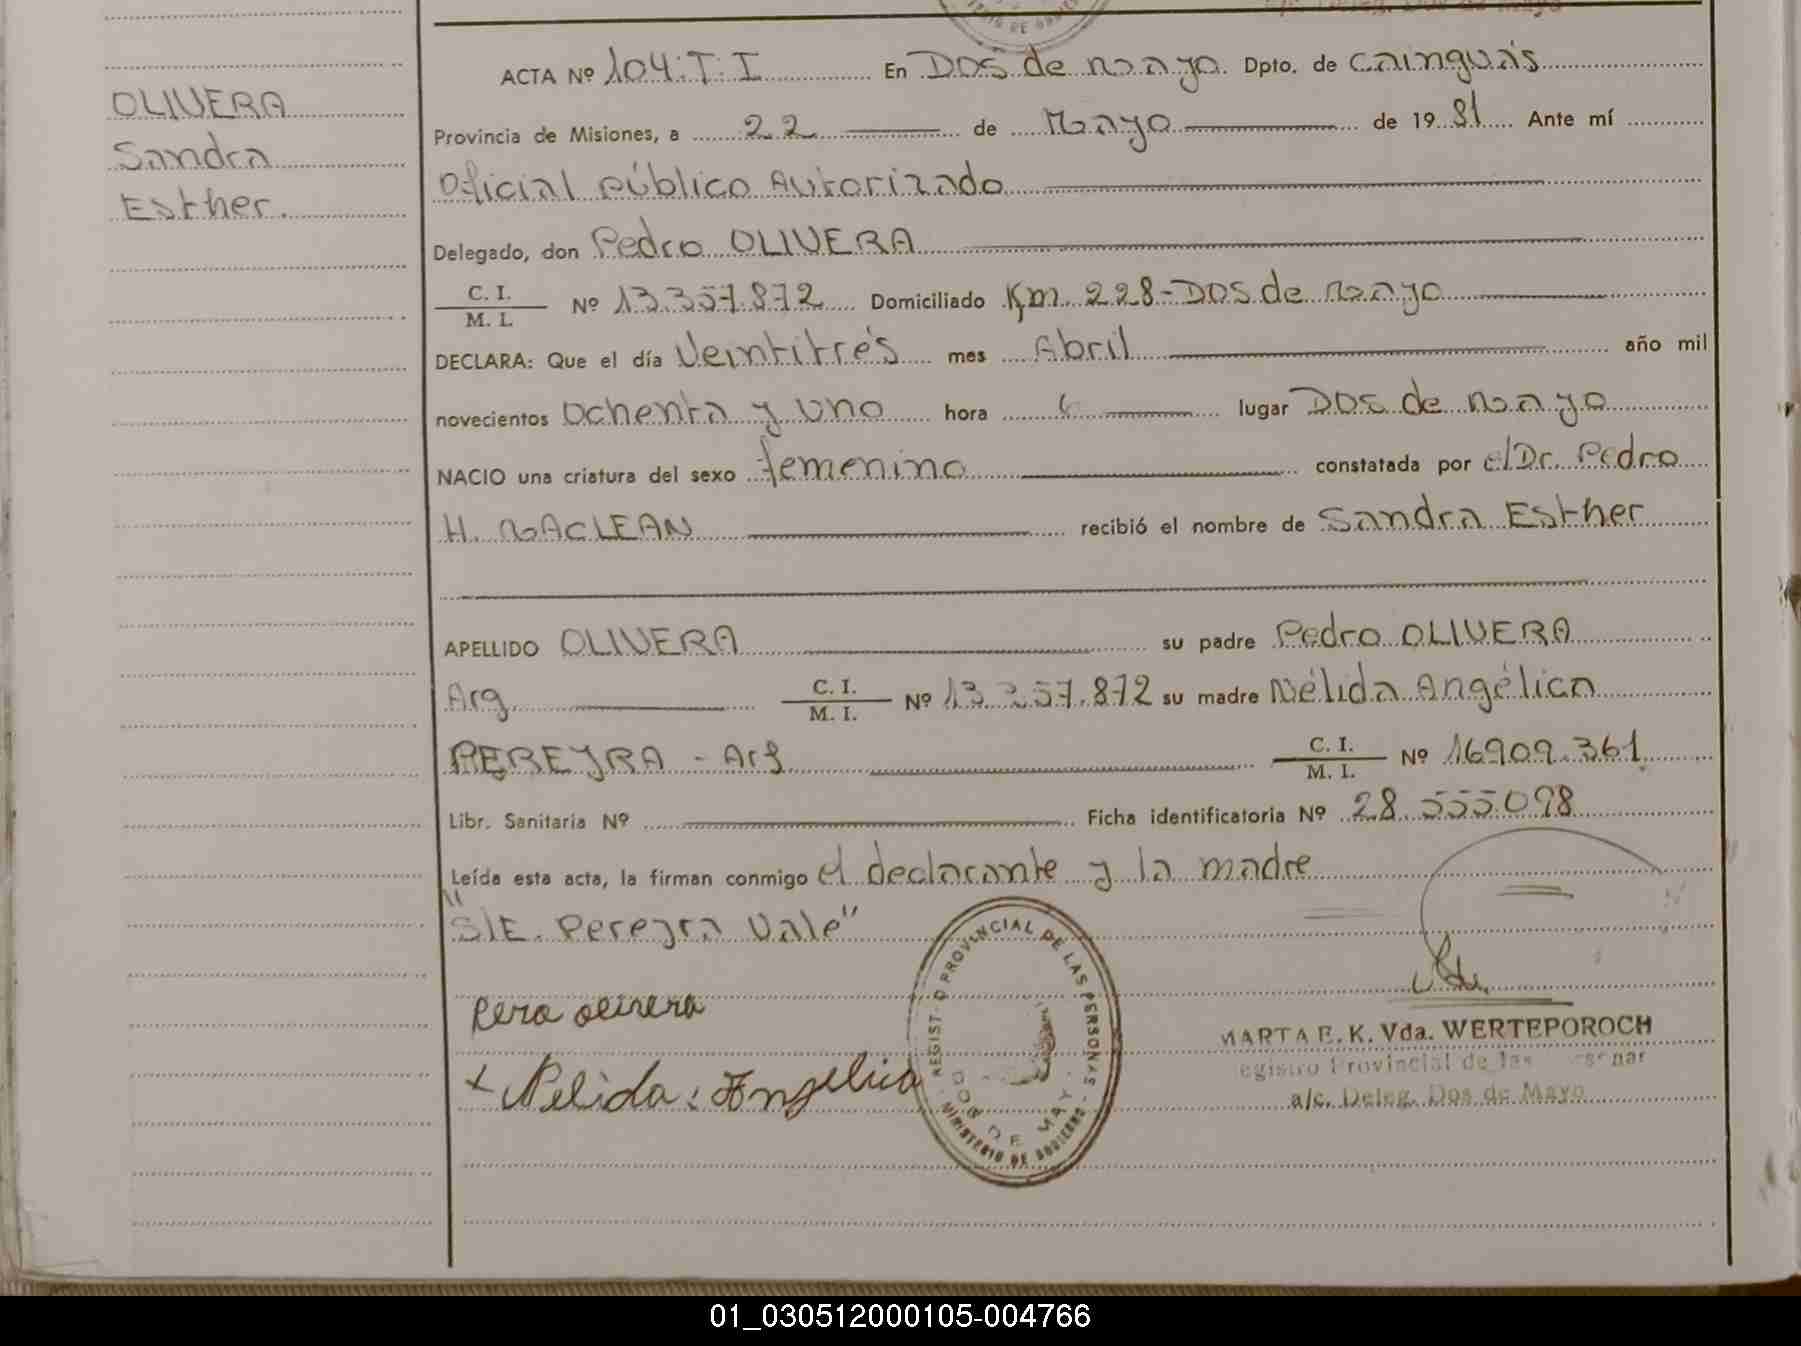 OLIVERA
Sandra
Esther.
ACTA Nº 104.T.I En Dos de mayo Dpto. de Cainguás
Provincia de Misiones, a 22 de Mayo de 1981 Ante mí
Oficial público Autorizado
Delegado, don Pedro OLIVERA
C. I.
M. I. Nº 13.357.872 Domiciliado Km 228-Dos de mayo
DECLARA: Que el día Veintitrés mes Abril año mil
novecientos Ochenta y uno hora 6 lugar Dos de mayo
NACIO una criatura del sexo femenino constatada por el Dr. Pedro
H. MACLEAN recibió el nombre de Sandra Esther
APELLIDO OLIVERA su padre Pedro OLIVERA
Arg. C. I.
M. I. Nº 13.357.872 su madre Nélida Angélica
PEREYRA - Arg C. I.
M. I. Nº 16909.361
Libr. Sanitaria Nº Ficha identificatoria Nº 28.555.098
Leída esta acta, la firman conmigo el declarante y la madre
"S/E. Pereyra Vale"
Nelida Angelica
REGISTRO PROVINCIAL DE LAS PERSONAS
DOS DE MAYO
MINISTERIO DE GOBIERNO
MARTA E. K. Vda. WERTEPOROCH
egistro Provincial de las
a/c. Deleg. Dos de Mayo
01_030512000105-004766